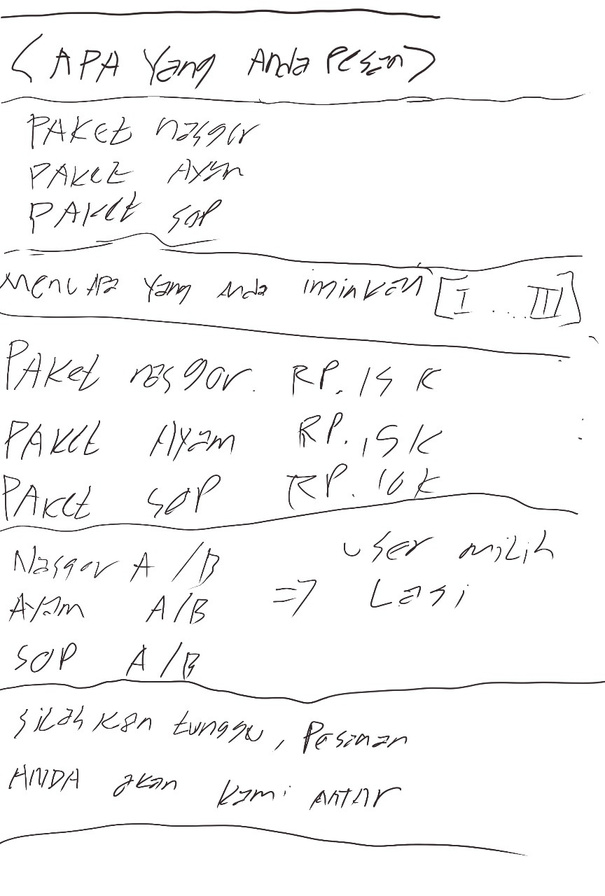 < APA Yang Anda Pesan >
PAKET nasgor
PAKET AYam
PAKET SOP
Menu APa Yang Anda iminkan [I ... III]
PAKet nasgor. RP. 15 K
PAKET AYam RP. 15 K
PAKET SOP RP. 10 K
Nasgor A / B user milih
AYam A/B => Lagi
SOP A / B
silahkan tunggu, Pesanan
ANDA akan kami ANTAR